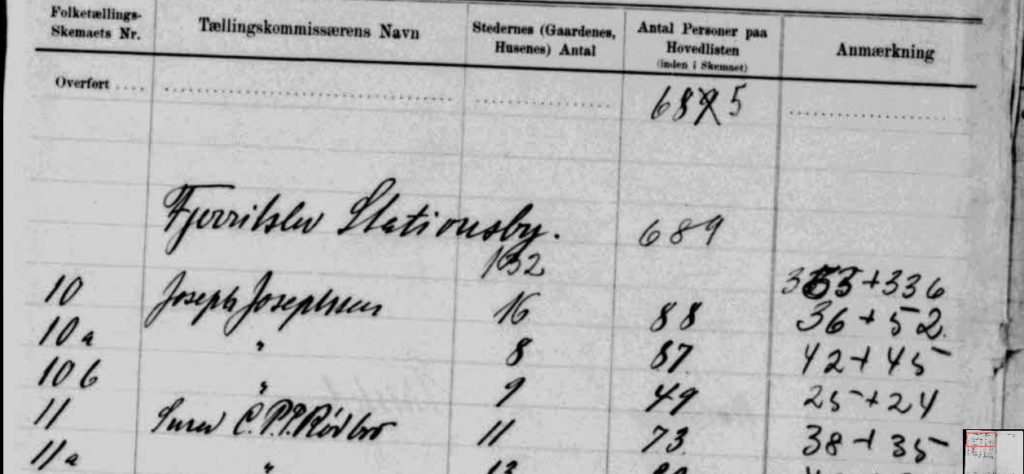 Folketællings-Skemaets Nr. Tællingskommissærens Navn Stedernes (Gaardenes, Husenes) Antal Antal Personer paa Hovedlisten (inden i Skemaet) Anmærkning
Overført .... 685
Fjerritslev Stationsby. 689
132
353+336
10 Joseph Josephsen 16 88 36+52
10a " 8 87 42+45
10b " 9 49 25+24
11 C.P.P. Rødbro 11 73 38+35
11a "